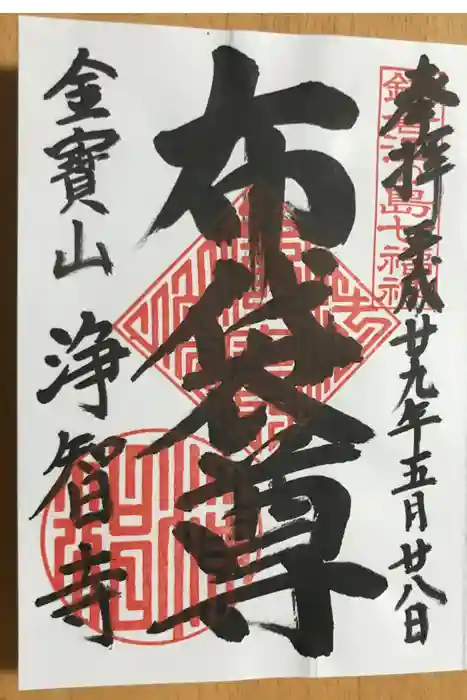 奉拝
平成廿九年五月廿八日
鎌倉江の島七福神
布袋尊
金寶山
浄智寺